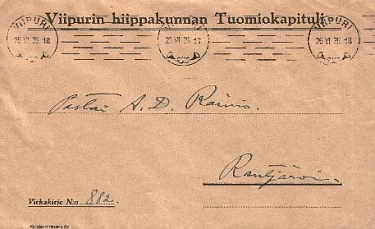 Viipurin hiippakunnan Tuomiokapituli.
VIIPURI
25.VI.26.18
VIIPURI
VIIPURI
Pastori A. D. Rainio.
Rautjärvi.
Virkakirje N:o 882.